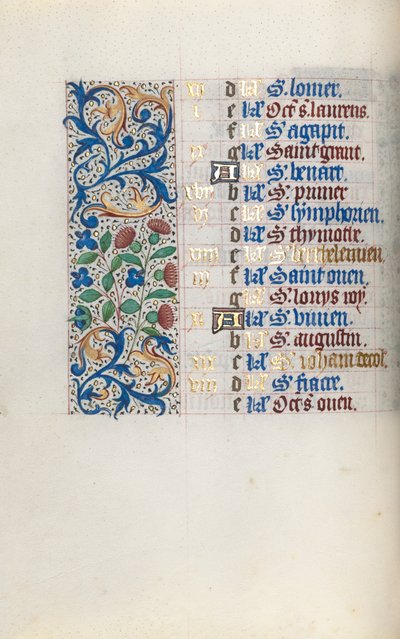 xij d kł S. lomer.
i e kł Oct. s. laurens.
f kł S. agapit.
ix g kł Saint grant.
A kł S. benart.
xvij b kł S. priuier
vj c kł S. symphorien.
d kł S. thymothe.
xiiij e kł S. berthelemien.
iij f kł Saint ouen.
g kł S. loys roy.
xi A kł S. viuien.
b kł S. augustin.
xix c kł S. iohan decol.
viij d kł S. fiacre.
e kł Oct. s. ouen.